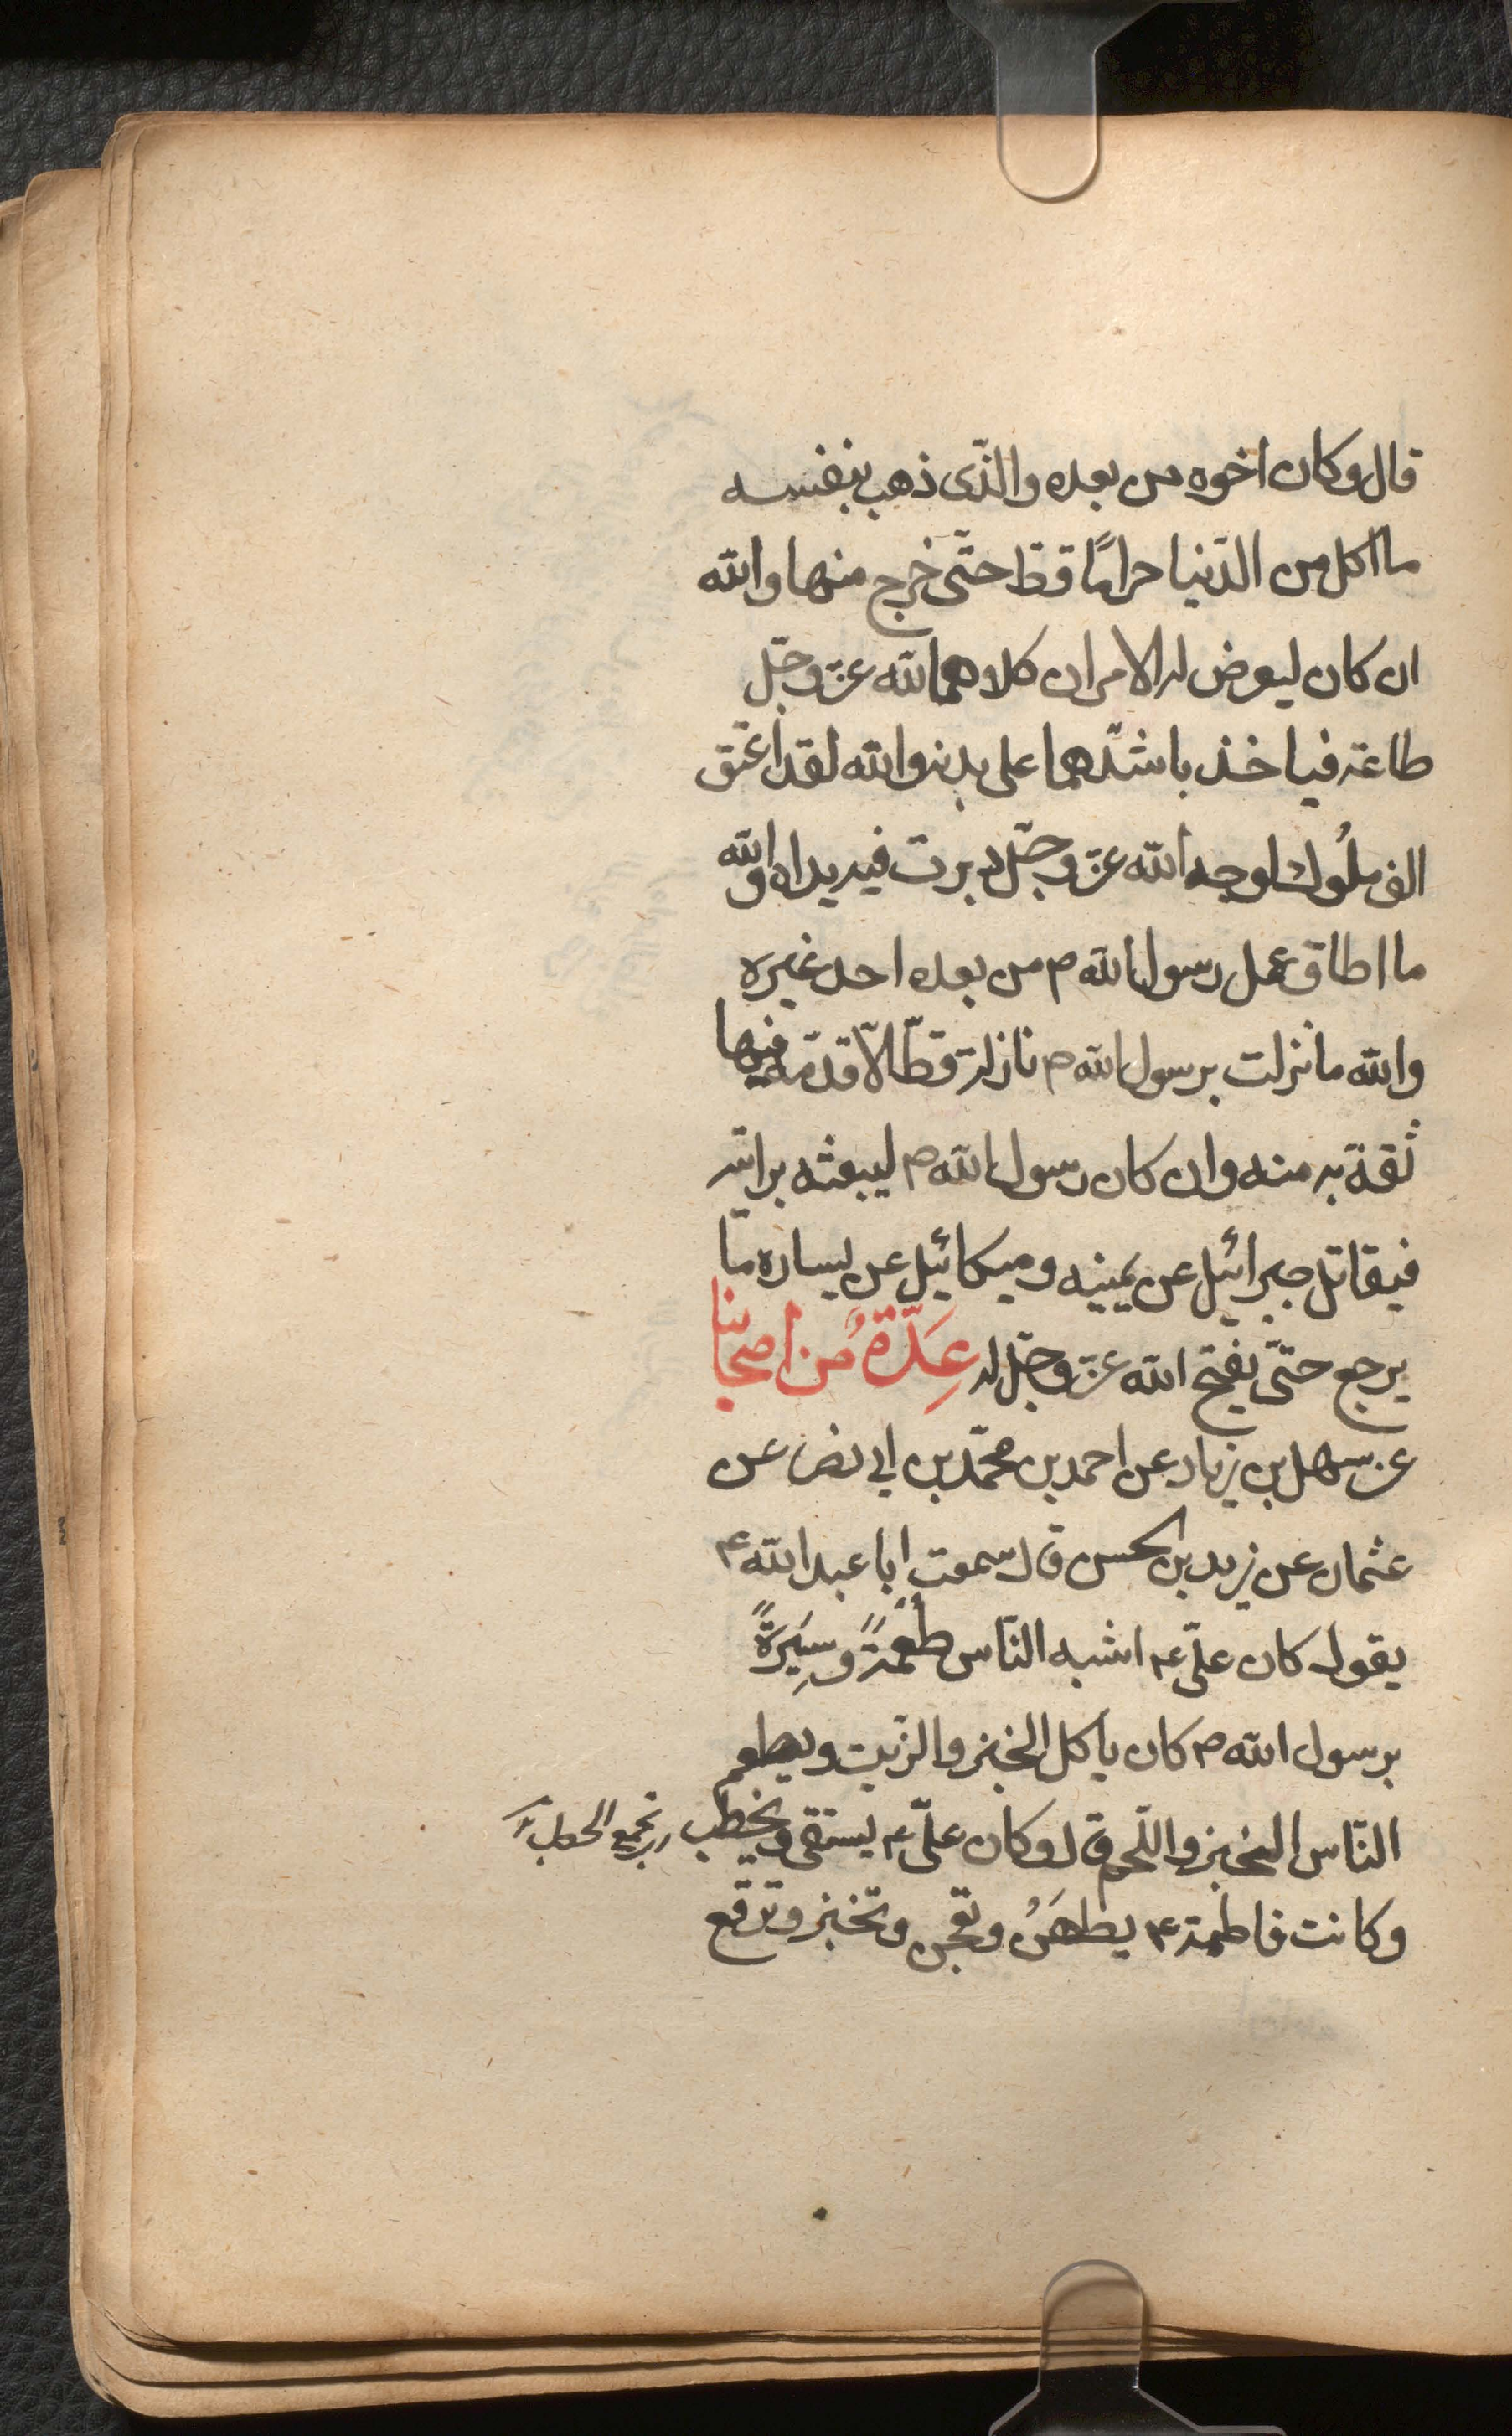 قال وكان اخوه من بعده والذّى ذهب بنفسه
ما اكل من الدّنيا حرامًا قطّ حتّى خرج منها والله
ان كان ليعرض له الامران كلاهما لله عزّ وجلّ
طاعة فياخذ باشدّهما على بدنه والله لقد اعتق
الف مملُوك لوجه الله عزّ وجلّ دبرت فيه يداه والله
ما اطاق عمل رسول الله ص من بعده احد غيره
والله ما نزلت برسول الله ص نازلة قطّ الّا قدّمه فيها
ثقة به منه وان كان رسول الله ص ليبعثه برايته
فيقاتل جبرائيل عن يمينه وميكائيل عن يساره ما
يرجع حتّى يفتح الله عزّ وجلّ له عِدّةٌ من اصحابنا
عن سهل بن زياد عن احمد بن محمّد بن ابى نصر عن
عثمان عن زيد بن الحسن قال سمعت ابا عبد الله ع
يقول كان علىّ ع اشبه النّاس طُعْمةً وسِيَرةً
برسول الله ص كان ياكل الخبز والزّيت ويطعم
النّاس الخبز واللّحم قال وكان علىّ ع يستقى ويخطب
وكانت فاطمة ع يطهَنُ وتعجن وتخبز وترقع